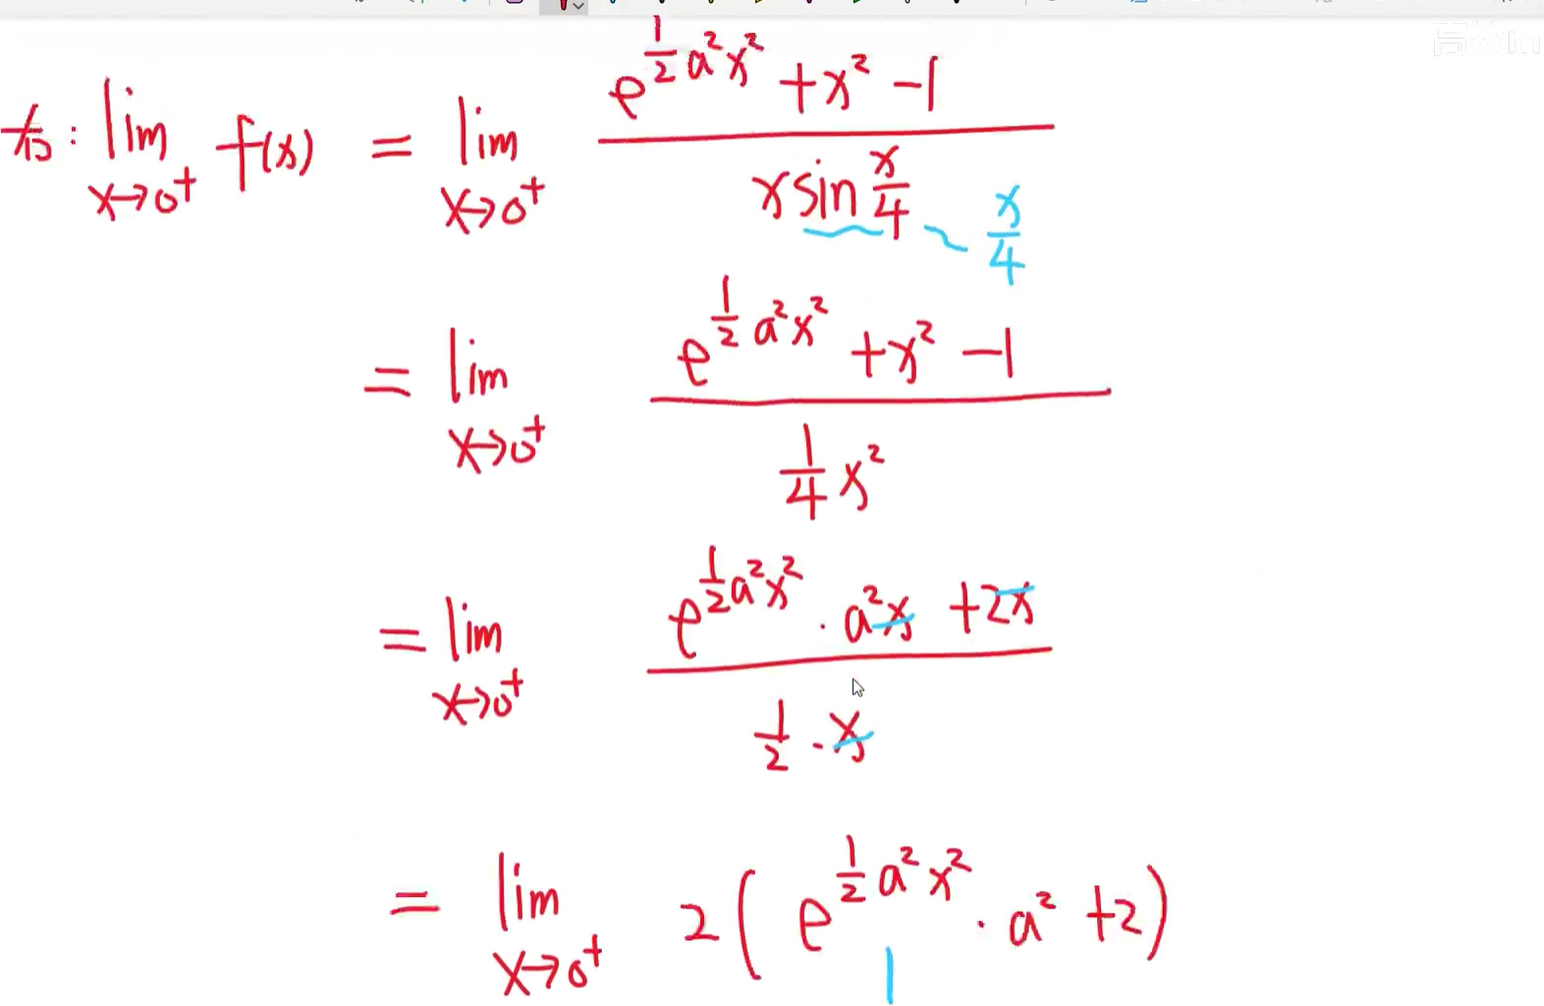 右: lim x→0⁺ f(x) = lim x→0⁺ (e^(1/2 a²x²) + x² - 1) / (x sin x/4) ~ x/4
= lim x→0⁺ (e^(1/2 a²x²) + x² - 1) / (1/4 x²)
= lim x→0⁺ (e^(1/2 a²x²) · a²x + 2x) / (1/2 · x)
= lim x→0⁺ 2(e^(1/2 a²x²) · a² + 2)
1